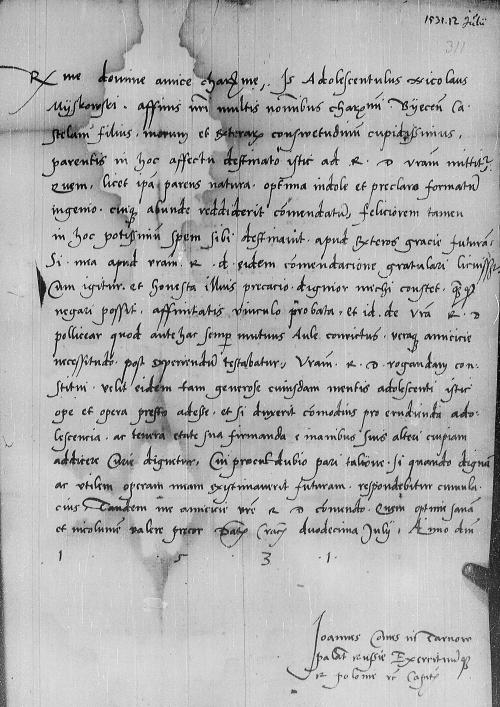 1531. 12 Julii
311
Rme domine amice charme, Is Adolescentulus Nicolaus
Myskowski. affinis nri multis noibus charmi Byecen Ca-
stelani filius, morum et exterarum consuetudinum cupidissimus,
parentis in hoc affectu destinato istic ad R. D vram mittitur.
Quem, licet ipa parens natura. optima indole et preclaro formatum
ingenio. cuique abunde reddiderit comendatum, feliciorem tamen
in hoc potissimum spem sibi destinavit. apud exteros gracie future,
Si. mea apud vram. R. d. eidem comendacione gratulari licuisset.
Cum igitur. et honesta illius precacio. dignior michi constet. quam
negari possit. affinitatis vinculo probata. et id. de vra R. D
pollicear quod ante hac semper mutuus Aule convictus. veraque amicicie
necessitudo. post experiendum testabatur, Vram. R. D rogandam con-
stitui. velit eidem tam generose cuiusdam mentis adolescenti istic
ope et opera presto adesse. et si duxerit comodius pro erudienda ado-
lescencia. ac tenera etate sua firmanda e manibus suis alteri cuipiam
addicere Curie dignetur, Cui procul dubio pari talione. si quando dignam
ac utilem operam meam existimaverit futuram. respondebitur cumula-
cius Tandem me amicicie vre R D comendo. Quam optime sanam
et incolumem valere precor Dat duodecima Julij, Anno dni
1 . 5 3 . 1 .
Joannes Comes in Tarnow
palat Russie Exercituumque
R polonie Capit